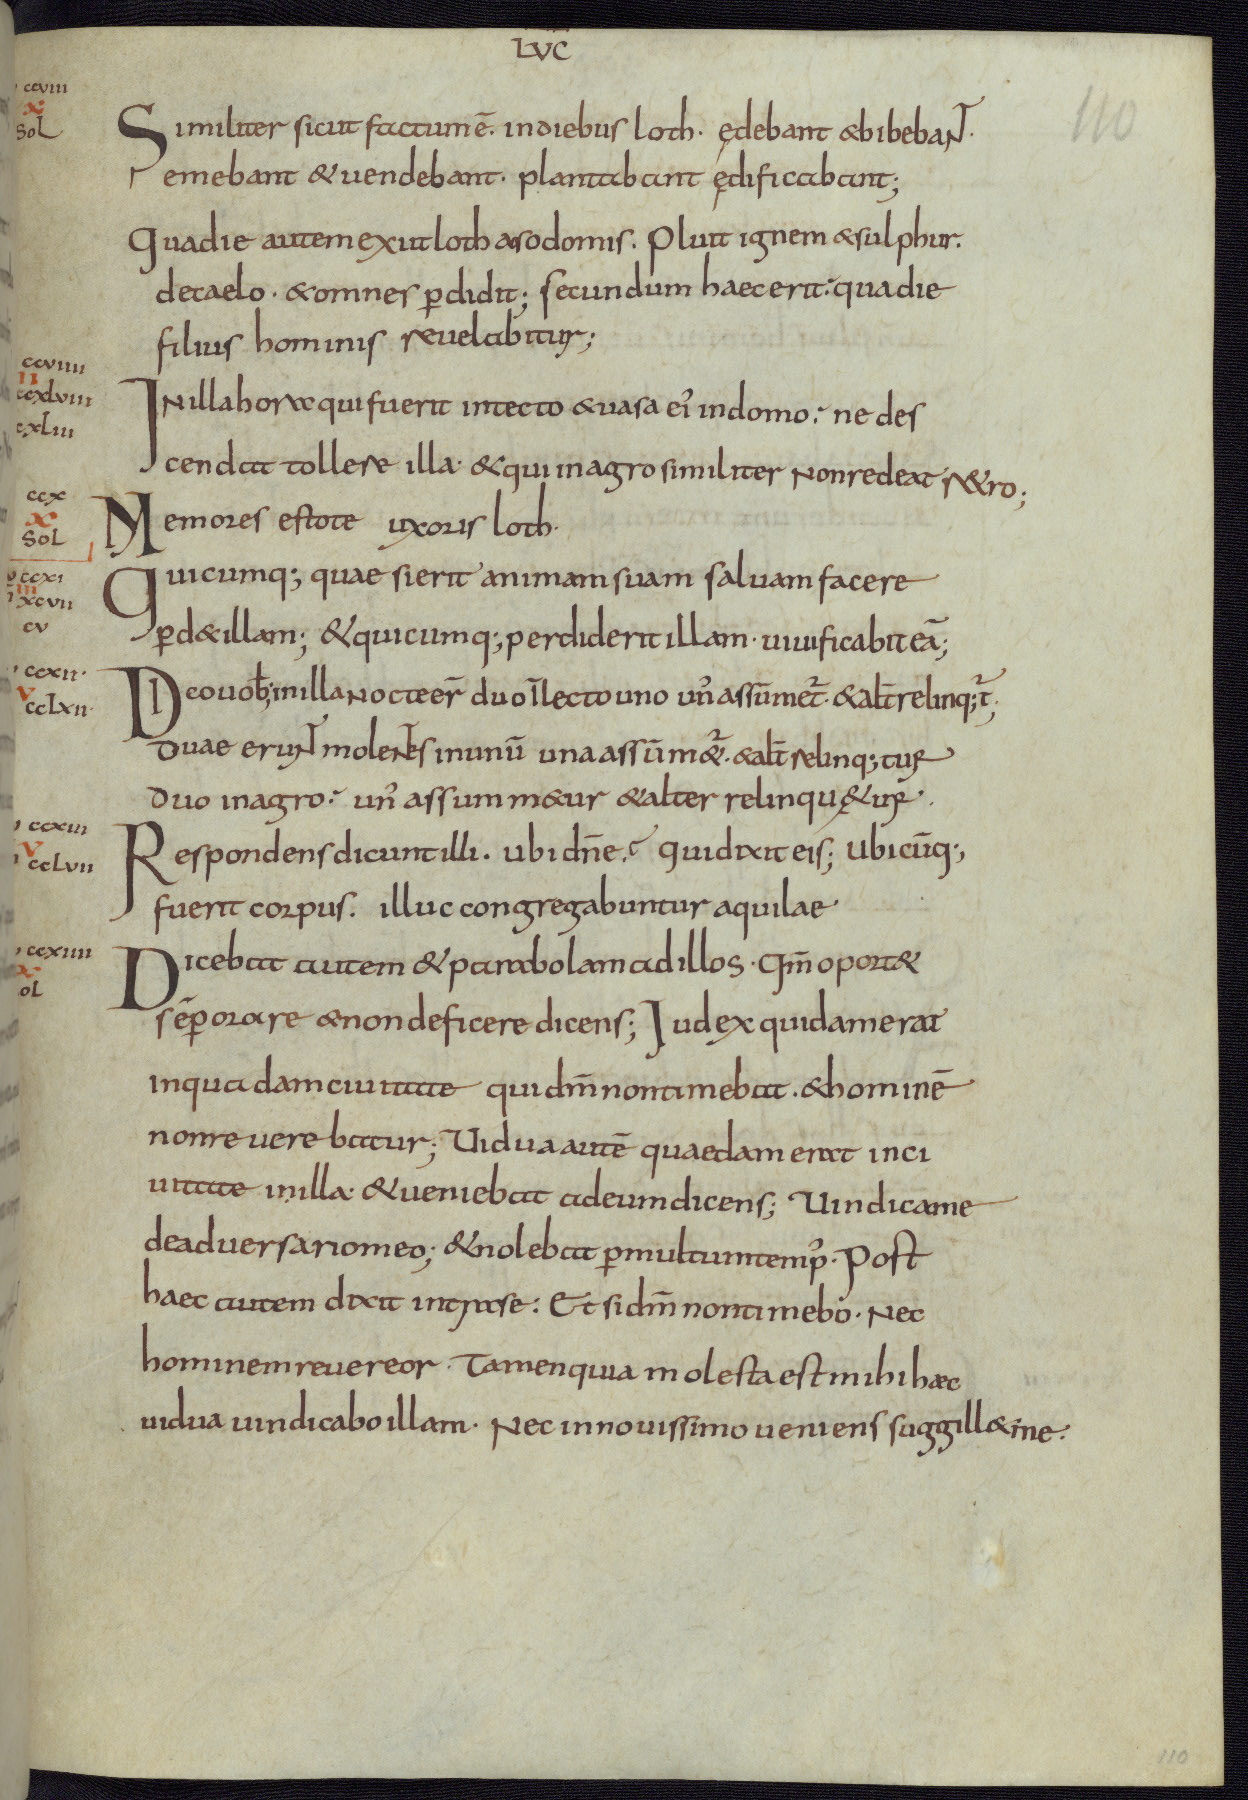 LUC
ccviii
x
Sol
110
Similiter sicut factum ē. in diebus loth. ędebant & bibebaNT̄.
emebant & uendebant. plantabant ędificabant;
Qua die autem exiit loth a sodomis. Pluit ignem & sulphur.
de caelo. & omnes ꝑdidit; secundum haec erit: qua die
filius hominis reuelabitur;
ccviiii
ii
ccxlviii
cxliii
IN illa hora qui fuerit in tecto & uasa ei᾿ in domo: ne des
cendat tollere illa. & qui in agro similiter Non redeat r&ro;
ccx
x
Sol
Memores estote uxoris loth.
ccxi
iii
xcvii
cv
Quicumq; quae sierit animam suam saluam facere
ꝑd& illam; & quicumq; perdiderit illam. uiuificabit eā;
ccxii
v
cclxii
Dico uob̄; in illa Nocte er̄ duo ī lecto uno un᾿ assūmet᾿. & alt̄ relinq;t᾿;
Duae eruNT moleNTes in unū una assūm&᾿. & alt̄ relinq;tur
Duo in agro: un᾿ assumm&ur & alter relinqu&ur.
ccxiii
v
cclvii
Respondens dicunt illi. ubi dn̄e? Qui dixit eis; Ubicūq;
fuerit corpus. illuc congregabuntur aquilae
ccxiiii
x
ol
Dicebat autem & parabolam ad illos. Qm̄ oport&
sēꝑ orare & non deficere dicens; Iudex quidam erat
in quadam ciuitate qui dm̄ non timebat. & hominē
non reuerebatur; Uidua autē quaedam erat in ci
uitate illa. & ueniebat ad eum dicens; Uindica me
de aduersario meo; & nolebat ꝑ multum temp᾿. Post
haec autem dixit intra se: Et si dm̄ non timebo. Nec
hominem reuereor. Tamen quia molesta est mihi haec
uidua uindicabo illam. Nec in nouissimo ueniens suggill& me.
110